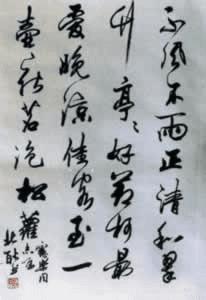 不風不雨正清和翠
竹亭〻好節柯最
愛晚涼佳客至一
壺新茗泡松蘿